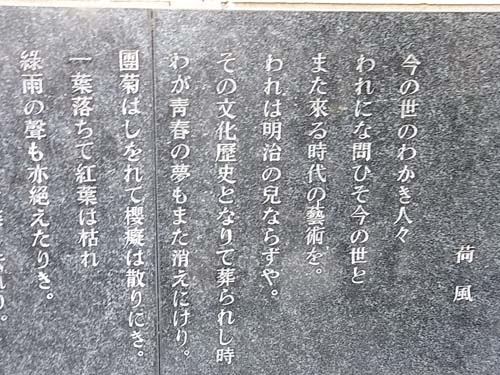 荷風
今の世のわかき人々
われにな問ひそ今の世と
また來る時代の藝術を。
われは明治の兒ならずや。
その文化歷史となりて葬られし時
わが青春の夢もまた消えにけり。
團菊はしをれて櫻癡は散りにき。
一葉落ちて紅葉は枯れ
綠雨の聲も亦絕えたりき。